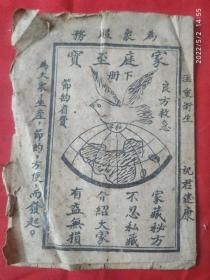 為家服務
家庭至寶
下册
良方救急
節約自費
家藏秘方
不忍私藏
介紹大家
有益無損
注重衛生
祝君健康
為大家生產，節約，方便，而發起。
2022/5/2 14:55